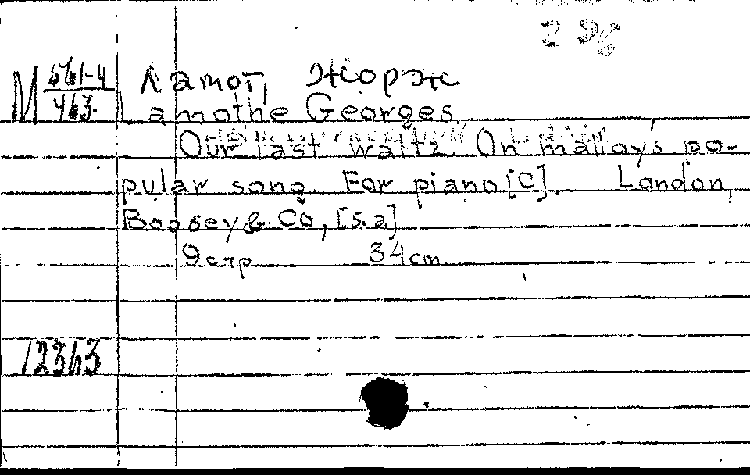 М 561-4/463
Ламот, Жорж
Lamothe Georges
Our last waltz. On malloy's po-
pular song. For piano [C]. London,
Boosey & Co, [s.a]
9 стр 34 cm
12363